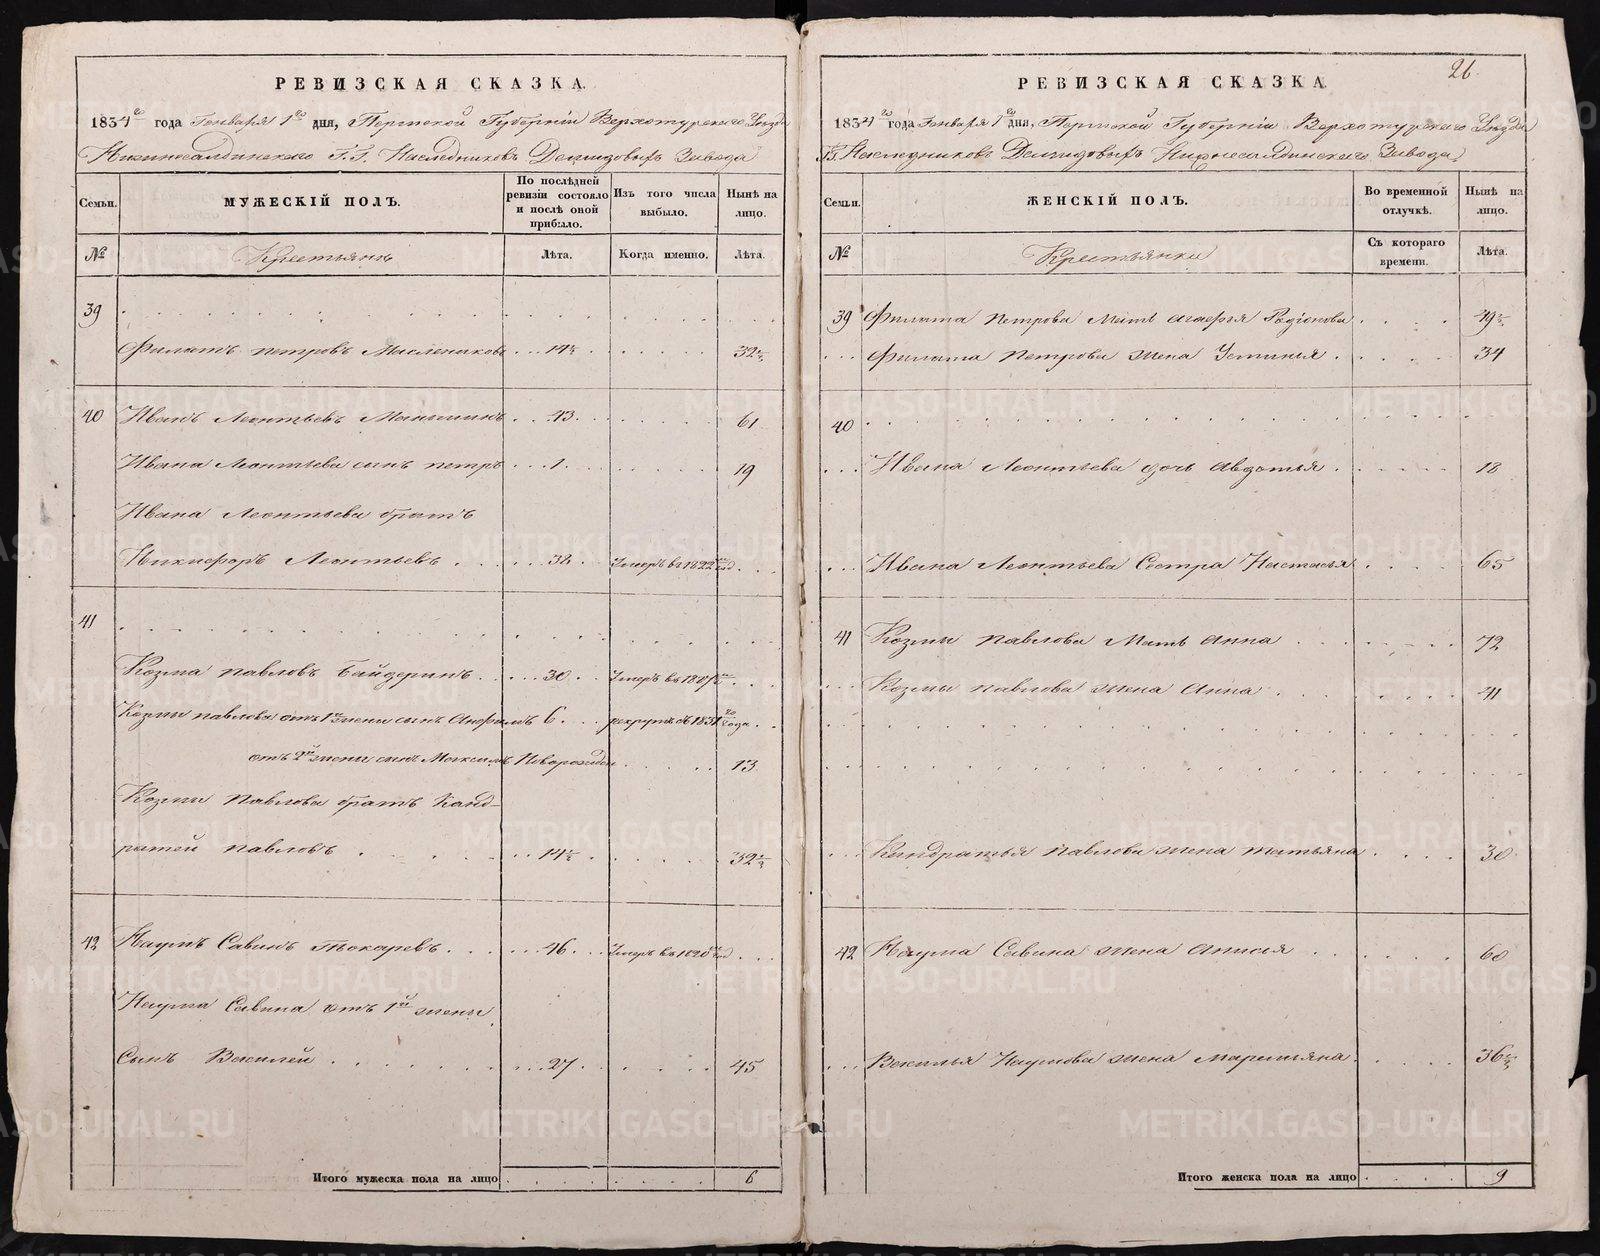 РЕВИЗСКАЯ СКАЗКА.
1834го года Генваря 1го дня, Пермской Губерніи Верхотурскаго Уѣзда
Нижнесалдинскаго Г.Г. Наследниковъ Демидовыхъ Завода
Семьи.
МУЖЕСКІЙ ПОЛЪ.
По послѣдней ревизіи состояло и послѣ оной прибыло.
Изъ того числа выбыло.
Нынѣ на лицо.
№
Крестьянъ
Лѣта.
Когда именно.
Лѣта.
39
Филатъ Петровъ Маслениковъ 14½ 32½
40 Иванъ Леонтьевъ 43 61
Ивана Леонтьева сынъ Петръ 1 19
Ивана Леонтьева братъ
Никифоръ Леонтьевъ 32 Умеръ въ 1822 год
41
Козма Павловъ Байдеринъ 30 Умеръ въ
Козмы Павлова отъ 1й жены сынъ 6 рекрутъ съ 1831го года
отъ 2й жены сынъ Максимъ Новорожден 13
Козмы Павлова братъ Канд-
ратей Павловъ 14½ 32½
42 Наумъ Савинъ Токаревъ 46 Умеръ въ год
Наума Савина отъ 1й жены
Сынъ Василей 27 45
Итого мужеска пола на лицо 6
26.
РЕВИЗСКАЯ СКАЗКА.
1834го года Генваря 1го дня, Пермской Губерніи Верхотурскаго Уѣзда
Г.Г. Наследниковъ Демидовыхъ Нижнесалдинскаго Завода
Семьи.
ЖЕНСКІЙ ПОЛЪ.
Во временной отлучкѣ.
Нынѣ на лицо.
№
Крестьянки
Съ котораго времени.
Лѣта.
39 Филата Петрова Мать Агафья Родіонова 49½
Филата Петрова жена Устинья 34
40
Ивана Леонтьева дочь Авдотья 18
Ивана Леонтьева Сестра Настасья 65
41 Козмы Павлова Мать Анна 72
Козмы Павлова жена Анна 41
Кандратья Павлова жена Татьяна 30
42 Наума Савина жена Анисья 60
Василья Наумова жена Маремьяна 36½
Итого женска пола на лицо 9
METRIKI.GASO-URAL.RU